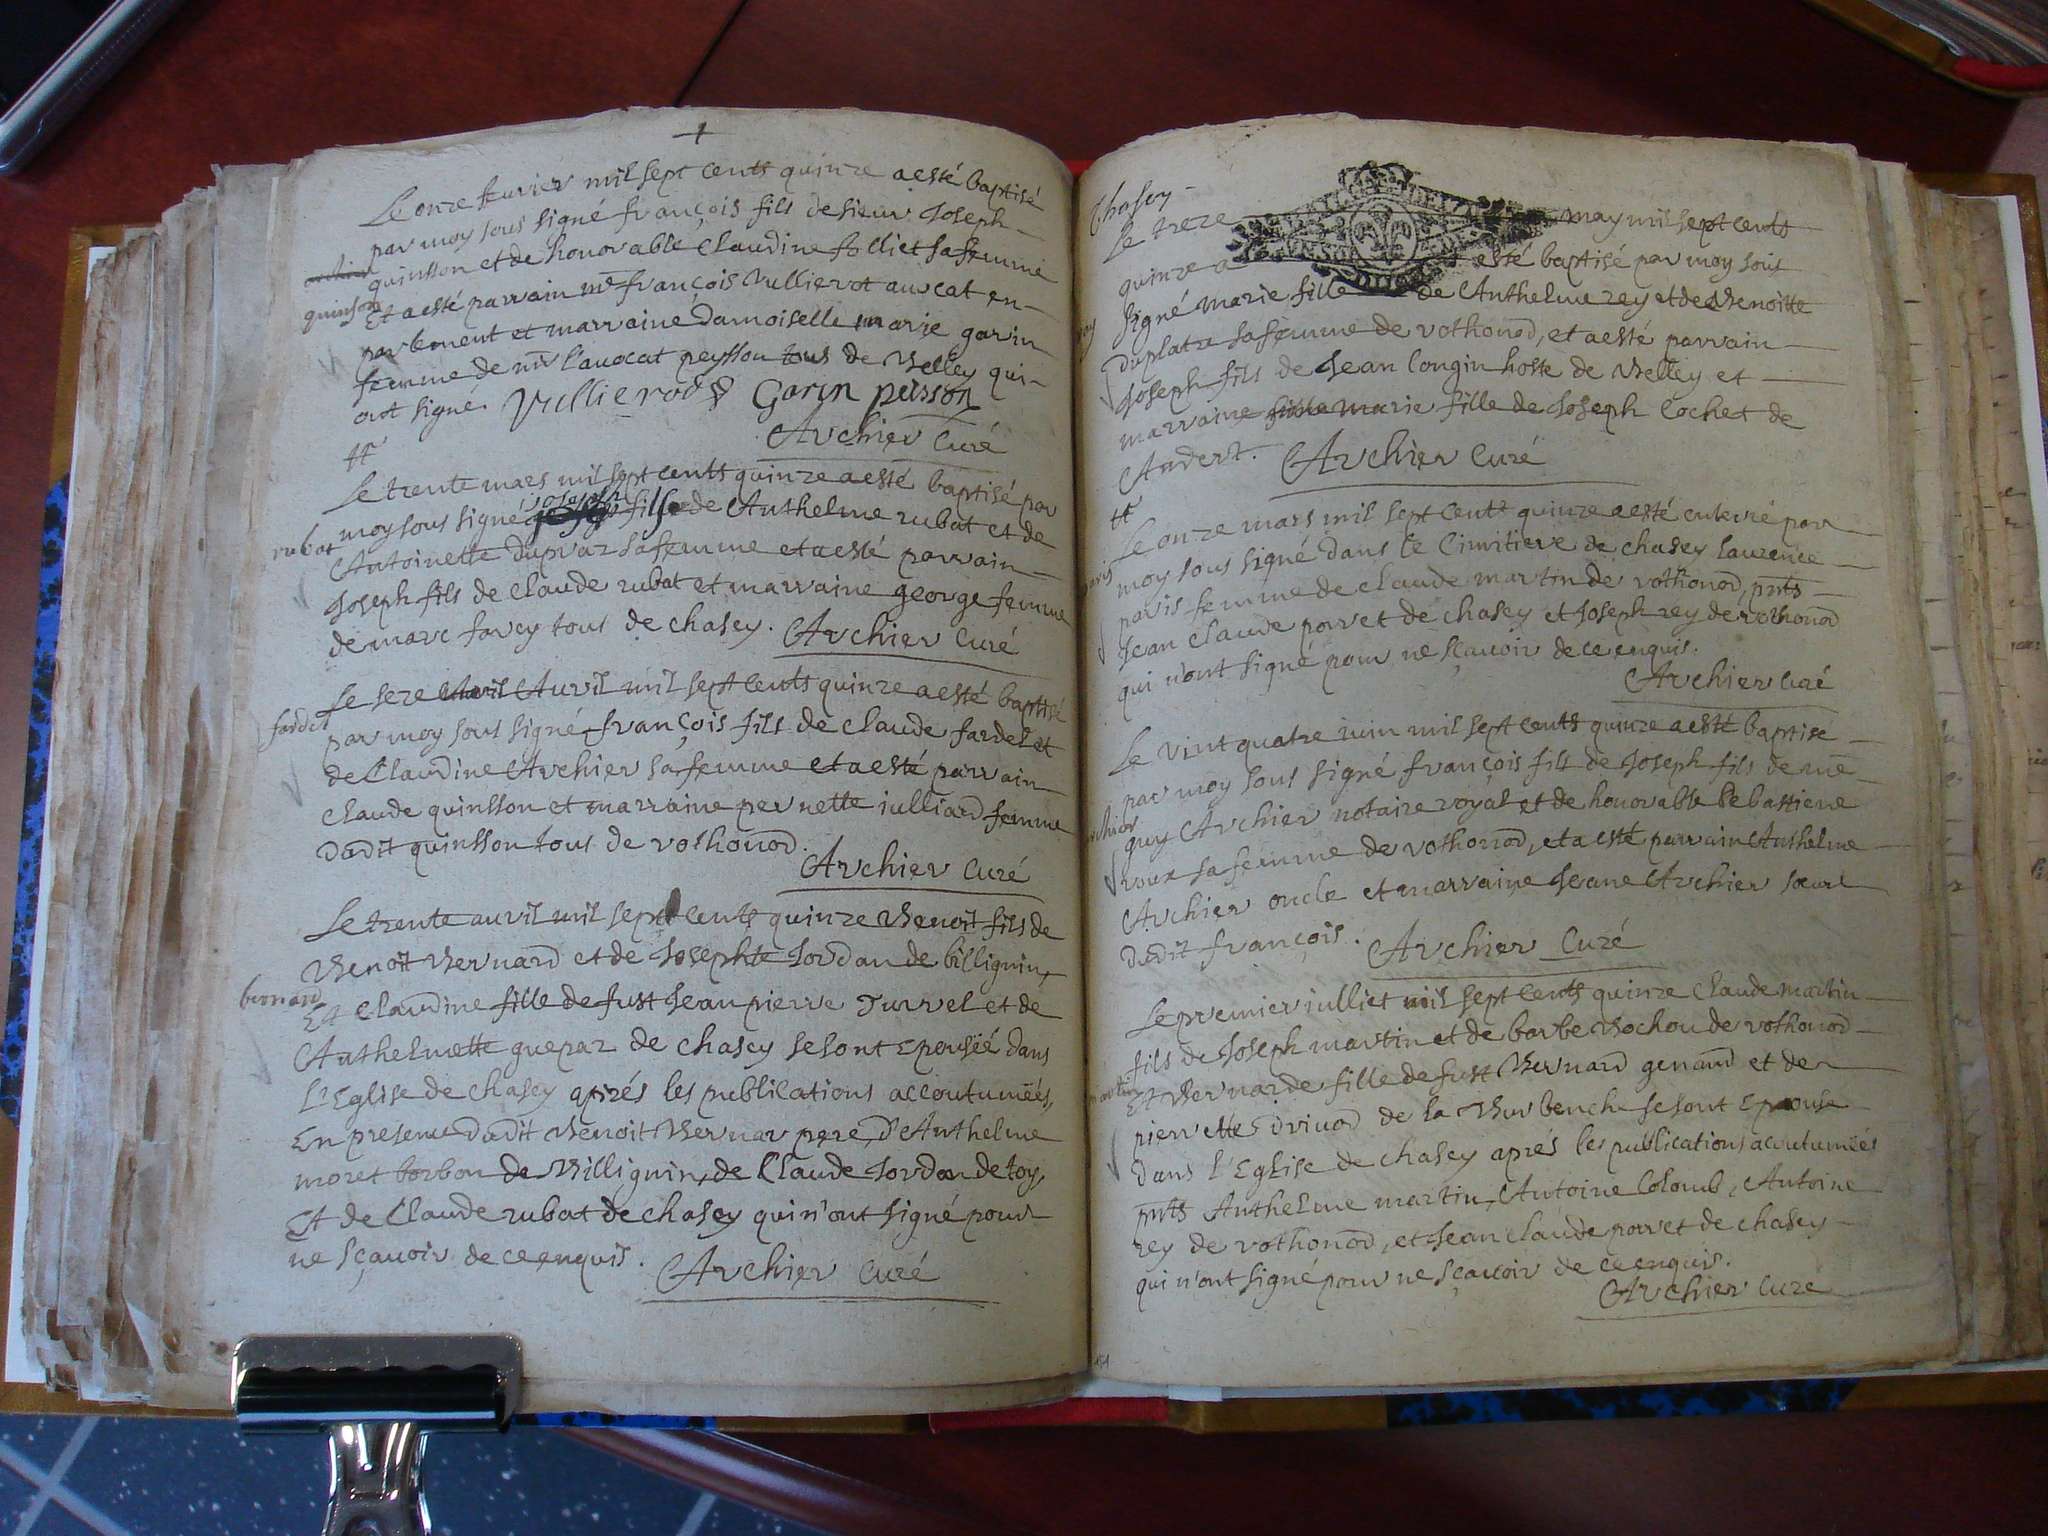 Le onze feuvrier mil sept cents quinze a esté baptisé
par moy sous signé françois fils de sieur Joseph
quinsson et de honorable Claudine folliet sa femme
quinson
Et a esté parrain me françois Vullierot auocat en
parlement et marraine damoiselle marie garin
femme de mr l'auocat peysson tous de Belley qui
ont signé. Vullierod Garin peisson
Archier Curé
Le trente mars mil sept cents quinze a esté baptisé par
rubat
moy sous signé joseph fils de Anthelme rubat et de
Antoinette dupraz sa femme et a esté parrain
Joseph fils de Claude rubat et marraine george femme
de marc favey tous de chasey. Archier Curé
Le seze Auril mil sept cents quinze a esté baptisé
fardel
par moy sous signé françois fils de Claude fardel et
de Claudine Archier sa femme et a esté parrain
Claude quinsson et marraine pernette iulliard femme
dudit quinsson tous de vothonod.
Archier Curé
Le trente auril mil sept cents quinze Benoit fils de
Benoit Bernard et de Josephte Jordan de billignin,
bernard
Et Claudine fille de fust Jean pierre Turrel et de
Anthelmette guepaz de chasey se sont Epousée dans
L'Eglise de chasey aprés les publications accoutumées,
En presence dudit Benoit Bernar pere, d'Anthelme
moret borbon de Billignin, de Claude Jordan de toy,
Et de Claude rubat de chasey qui n'ont signé pour
ne sçauoir de ce enquis. Archier Curé
Chasey
Le treze may mil sept cents
quinze a esté baptisé par moy sous
signé marie fille de Anthelme rey et de Benoitte
duplatre sa femme de vothonod, et a esté parrain
Joseph fils de Jean Longin hoste de Belley et
marraine marie fille de Joseph Cochet de
Andert. Archier Curé
Le onze mars mil sept cents quinze a esté enterré par
moy sous signé dans le Cimitiere de chasey laurence
paris
paris femme de Claude martin de vothonod, pnts
Jean Claude porret de chasey et Joseph rey de vothonod
qui n'ont signé pour ne sçauoir de ce enquis.
Archier Curé
Le vint quatre iuin mil sept cents quinze a esté baptisé
par moy sous signé françois fils de Joseph fils de me
guy Archier notaire royal et de honorable Sebastiene
roux sa femme de vothonod, et a esté parrain Anthelme
Archier oncle et marraine Jeane Archier soeur
dudit françois. Archier Curé
Le premier iulliet mil sept cents quinze Claude martin
fils de Joseph martin et de barbe Bochou de vothonod
martin
Et Bernarde fille de fust Bernard genand et de
pierrette driuod de la Burbenche se sont Epouse
dans l'Eglise de chasey aprés les publications acoutumées
pnts Anthelme martin, Antoine Colomb, Antoine
rey de vothonod, et Jean Claude porret de chasey
qui n'ont signé pour ne sçauoir de ce enquis.
Archier Curé